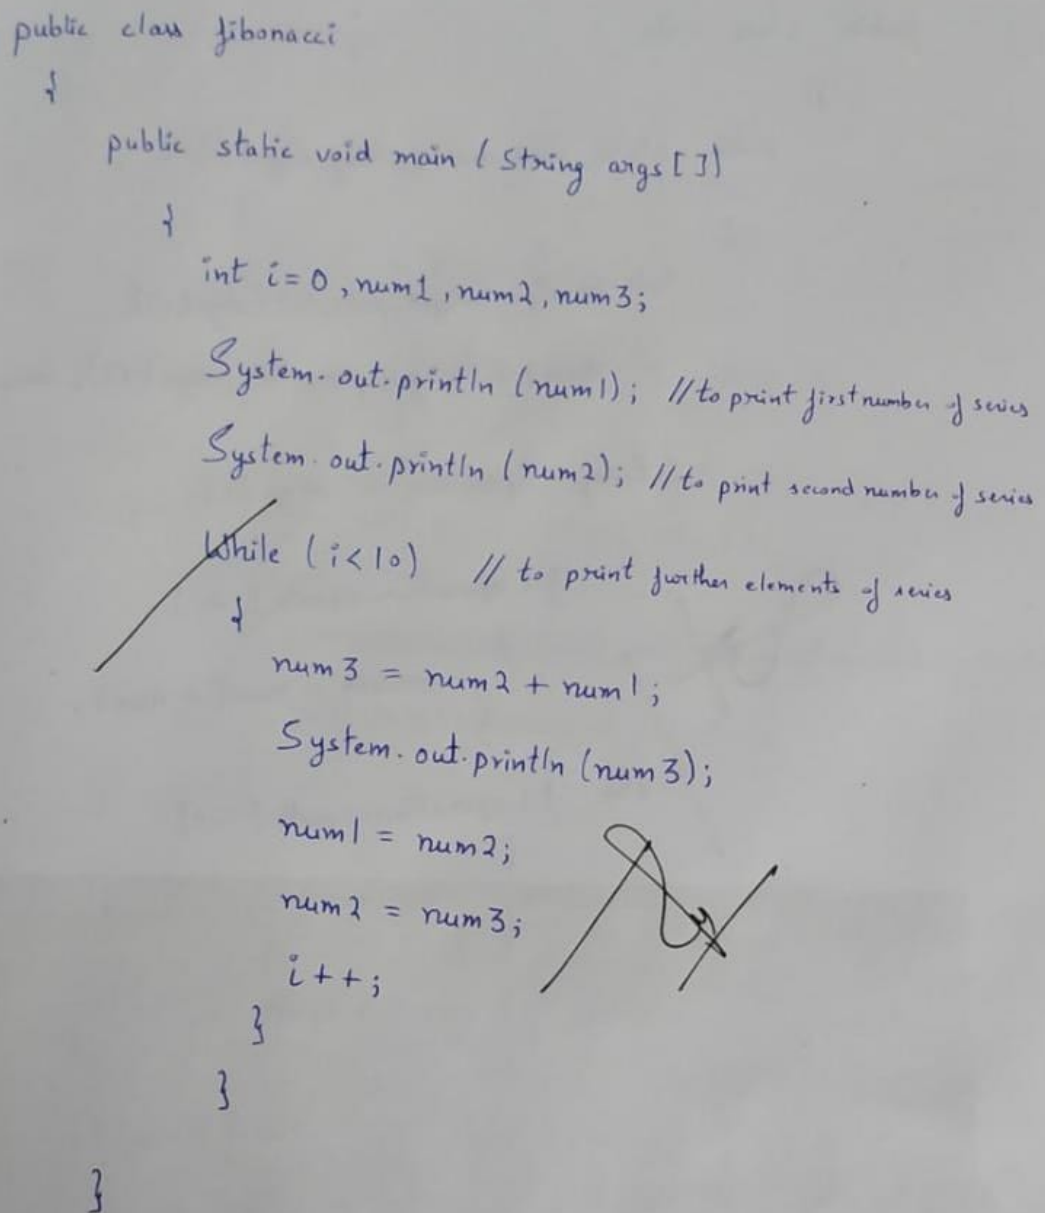 public class fibonacci
{
public static void main (String args[])
{
int i=0, num1, num2, num3;
System.out.println (num1); //to print first number of series
System.out.println (num2); //to print second number of series
While (i<10) // to print further elements of series
{
num3 = num2 + num1;
System.out.println (num3);
num1 = num2;
num2 = num3;
i++;
}
}
}